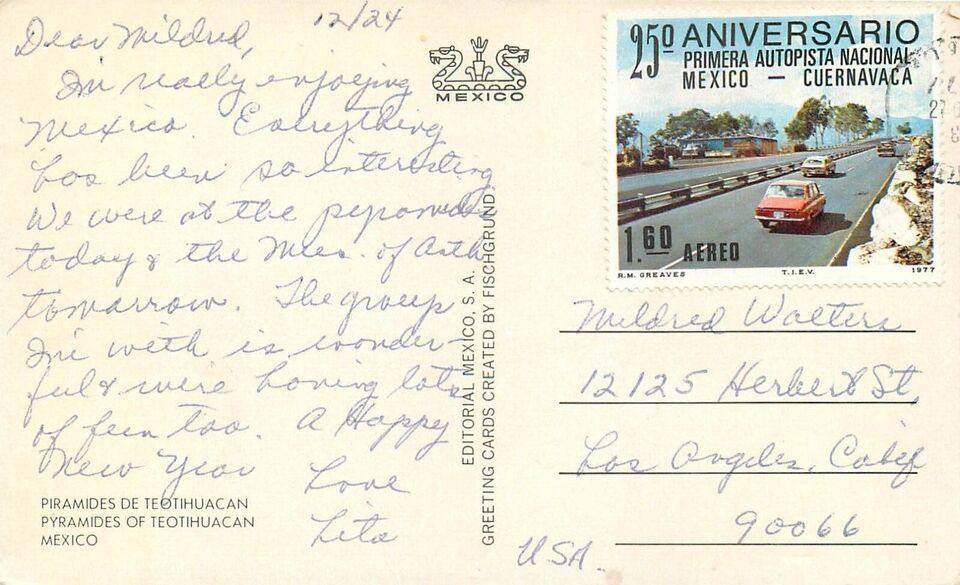 12/24
Dear Mildred,
I'm really enjoying
Mexico. Everything
has been so interesting
We were at the pyramids
today & the Mus. of Anth
tomorrow. The group
I'm with is wonder-
ful & we're having lots
of fun too. A Happy
New Year
Love
Lita
PIRAMIDES DE TEOTIHUACAN
PYRAMIDES OF TEOTIHUACAN
MEXICO
MEXICO
EDITORIAL MEXICO, S. A.
GREETING CARDS CREATED BY FISCHGRUND
25º ANIVERSARIO
PRIMERA AUTOPISTA NACIONAL
MEXICO — CUERNAVACA
1.60 AEREO
R.M. GREAVES T.I.E.V. 1977
Mildred Walters
12125 Herbert St,
Los Angeles, Calif
90066
USA.